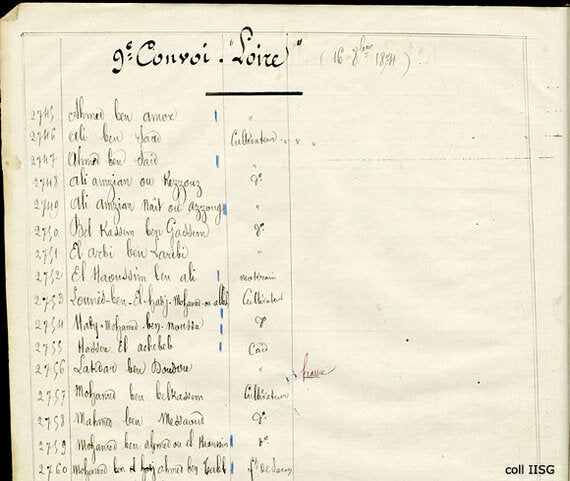 9e Convoi - "Loire" (16 8bre 1874)
2745 Ahmed ben amor "
2746 Ali ben Saïd Cultivateur
2747 Ahmed ben Saïd "
2748 Ali amzian ou Kezzouz do
2749 Ali Amzian Naït ou azzoug "
2750 Bel Kassem ben Gassem do
2751 El Arbi ben Laribi "
2752 El Haoussim ben ali
2753 Lounis-ben-El-hadj-Mohamed-ou-allel Cultivateur
2754 Hady-Mohamed-ben-moussa do
2755 Hassen El achebeb Caïd
2756 Lakdar ben
2757 Mohamed ben belkassem Cultivateur
2758 Mahmed ben Messaoud do
2759 Mohamed ben ahmed ou el Haoussin do
2760 Mohamed ben el hadj ahmed ben
coll IISG